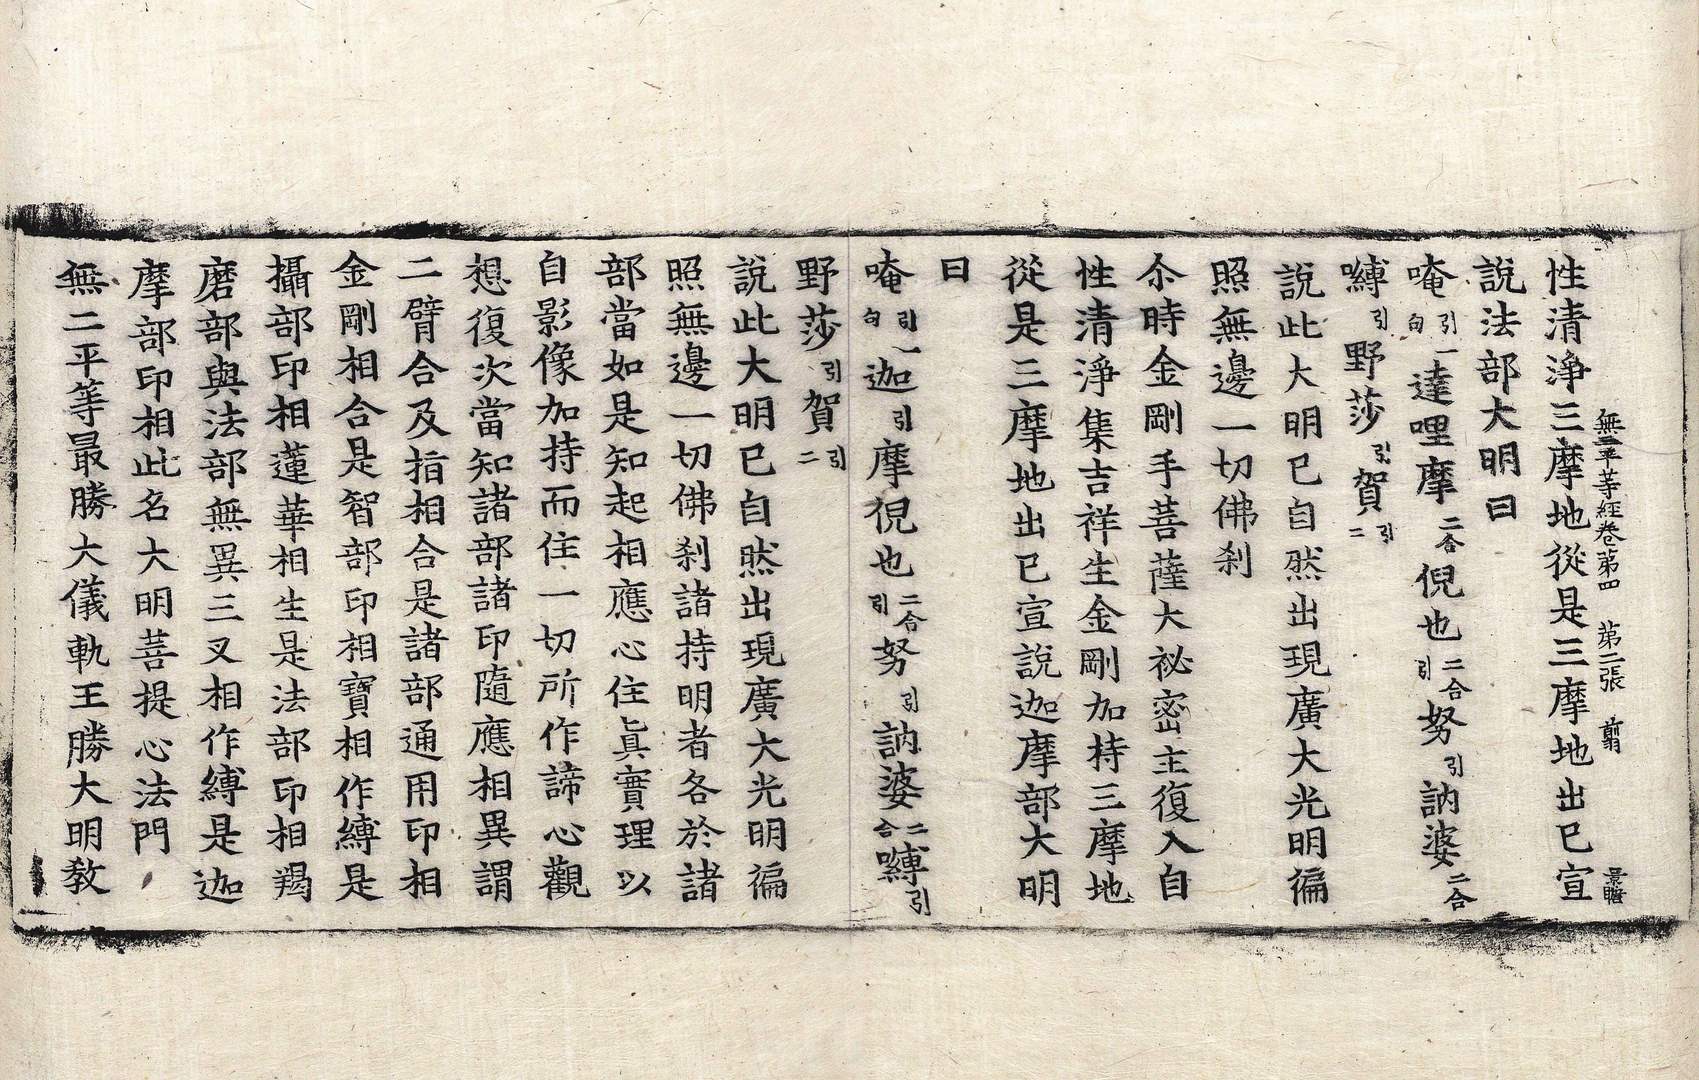 無二平等經卷第四 第二張 剪 景瞻
性清淨三摩地從是三摩地出已宣
說法部大明曰
唵引一句達哩摩二合倪也二合引努引訥婆二合
嚩引野莎引賀引二
說此大明已自然出現廣大光明徧
照無邊一切佛刹
尒時金剛手菩薩大祕密主復入自
性清淨集吉祥生金剛加持三摩地
從是三摩地出已宣說迦摩部大明
曰
唵引一句迦引摩倪也二合引努引訥婆二合嚩引
野莎引賀引二
說此大明已自然出現廣大光明徧
照無邊一切佛刹諸持明者各於諸
部當如是知起相應心住眞實理以
自影像加持而住一切所作諦心觀
想復次當知諸部諸印隨應相異謂
二臂合及指相合是諸部通用印相
金剛相合是智部印相寶相作縛是
攝部印相蓮華相生是法部印相羯
磨部與法部無異三叉相作縛是迦
摩部印相此名大明菩提心法門
無二平等最勝大儀軌王勝大明教